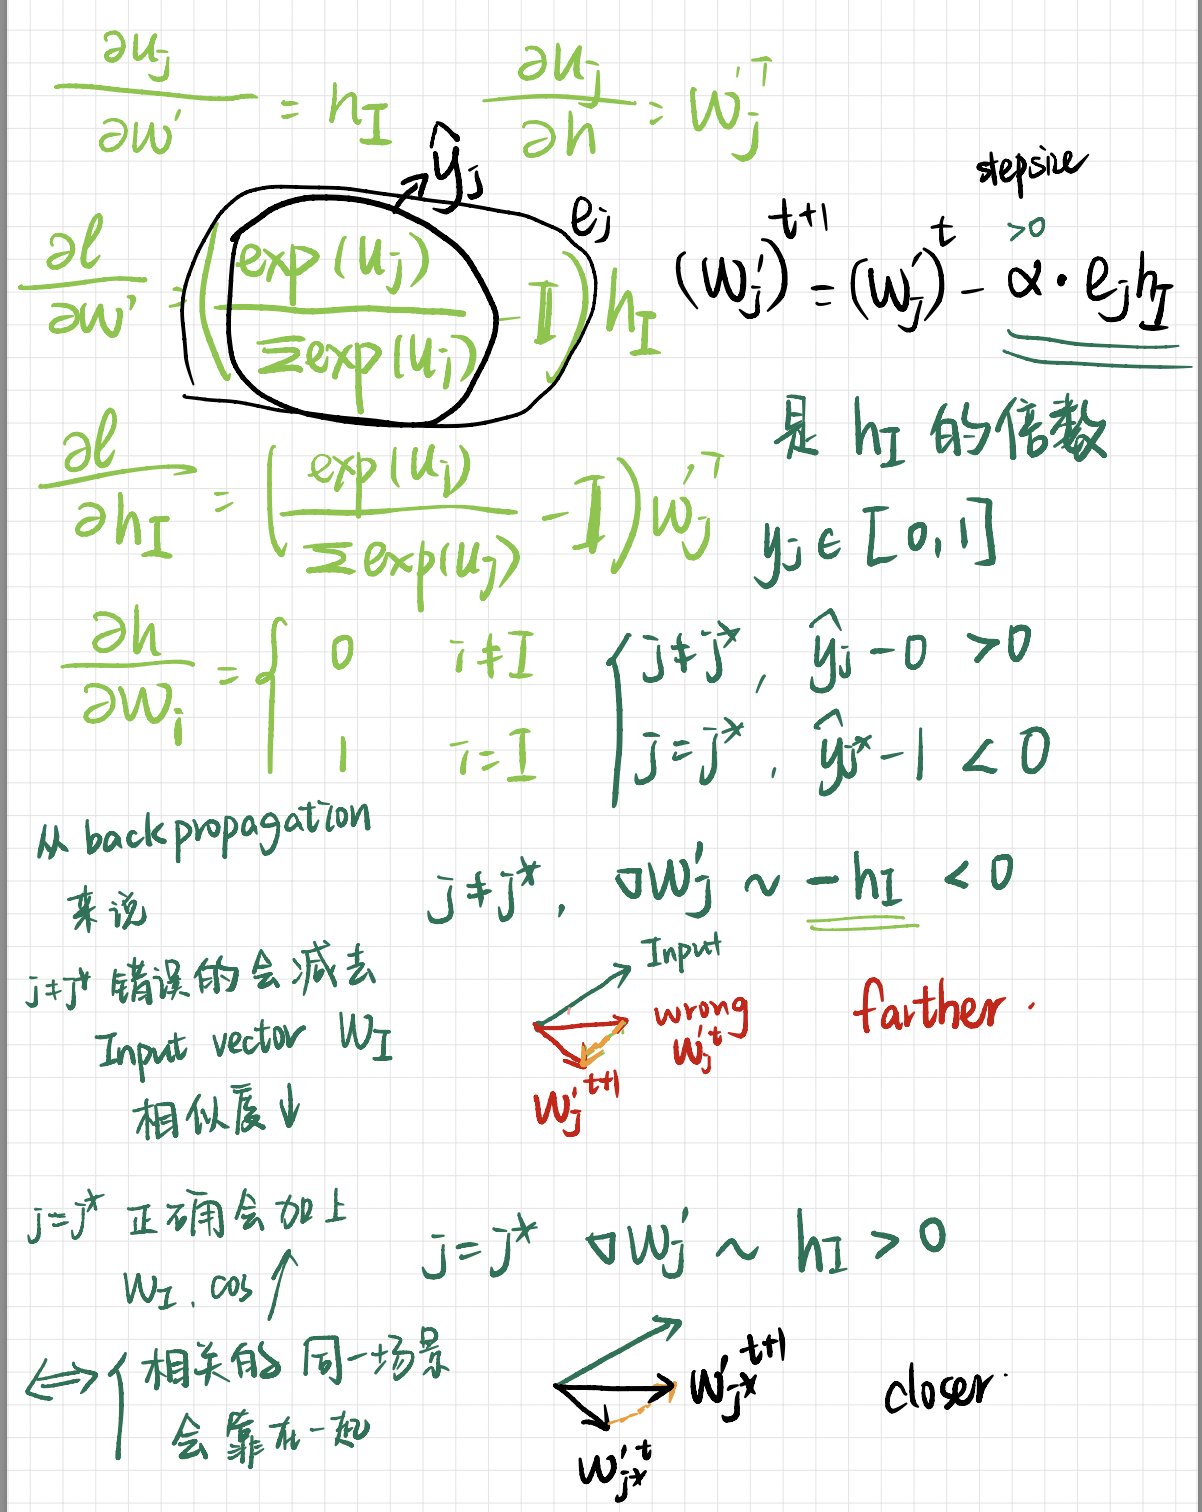 ∂u_j/∂w' = h_I    ∂u_j/∂h = w'_j^T
ŷ_j
∂ℓ/∂w' = (exp(u_j)/Σexp(u_j) - 𝕀) h_I    e_j
stepsize
>0
(w'_j)^{t+1} = (w'_j)^t - α · e_j h_I
是 h_I 的倍数
∂ℓ/∂h_I = (exp(u_j)/Σexp(u_j) - 𝕀) w'_j^T
y_j ∈ [0,1]
∂h/∂w_i = { 0    i≠I
1    i=I
{ j≠j*, ŷ_j - 0 > 0
j=j*, ŷ_j* - 1 < 0
从 backpropagation
来说
j≠j*, ∇w'_j ~ -h_I < 0
j≠j* 错误的会减去
Input vector W_I
相似度↓
Input
wrong
w'_j^t
w'_j^{t+1}
farther.
j=j* 正确会加上
W_I. cos ↑
j=j* ∇w'_j ~ h_I > 0
⟺ { 相关的 同一场景
会靠在一起
w'_j*^{t+1}
w'_j*^t
closer.